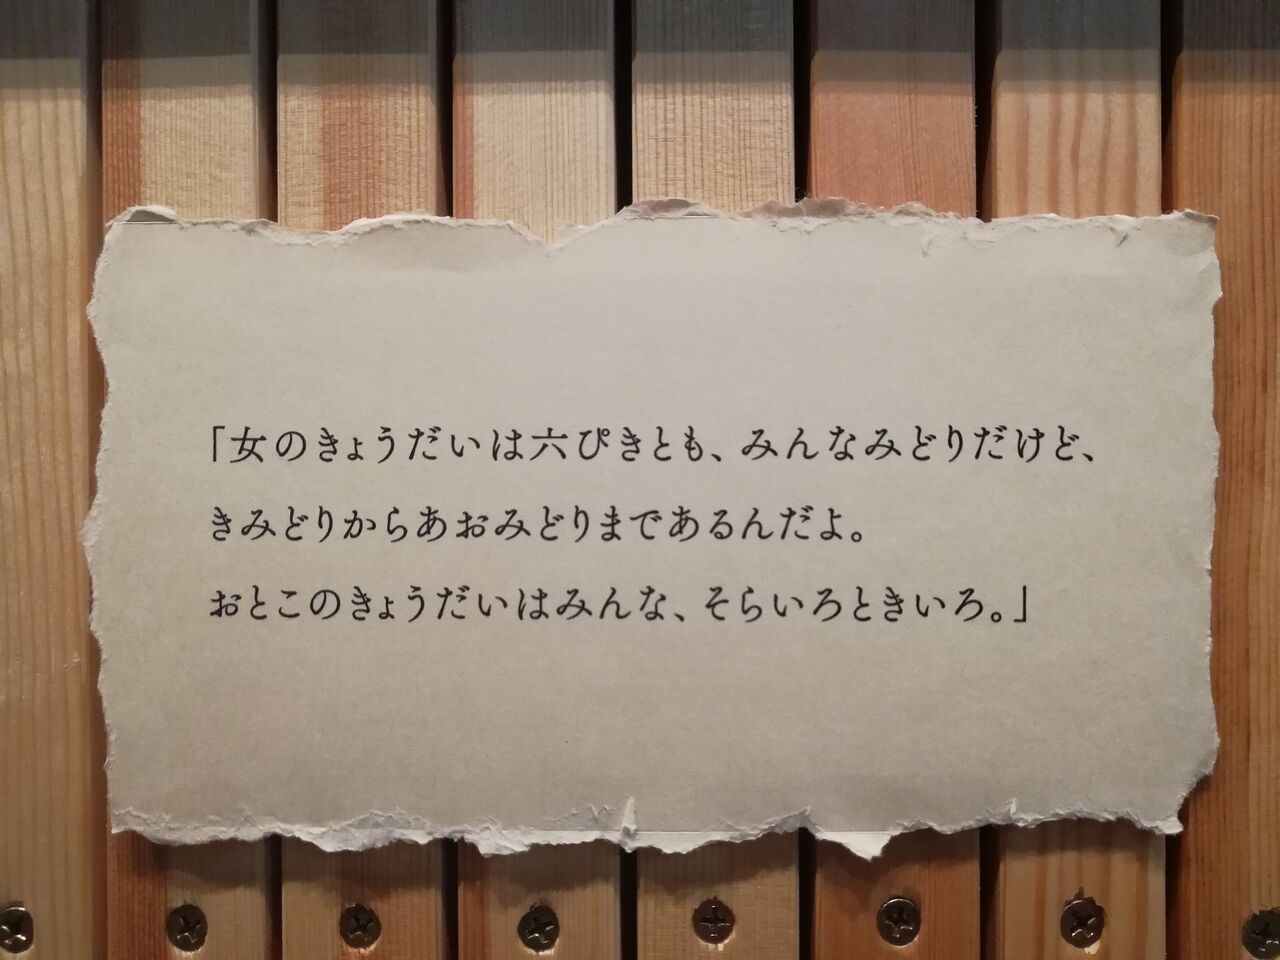 「女のきょうだいは六ぴきとも、みんなみどりだけど、
きみどりからあおみどりまであるんだよ。
おとこのきょうだいはみんな、そらいろときいろ。」